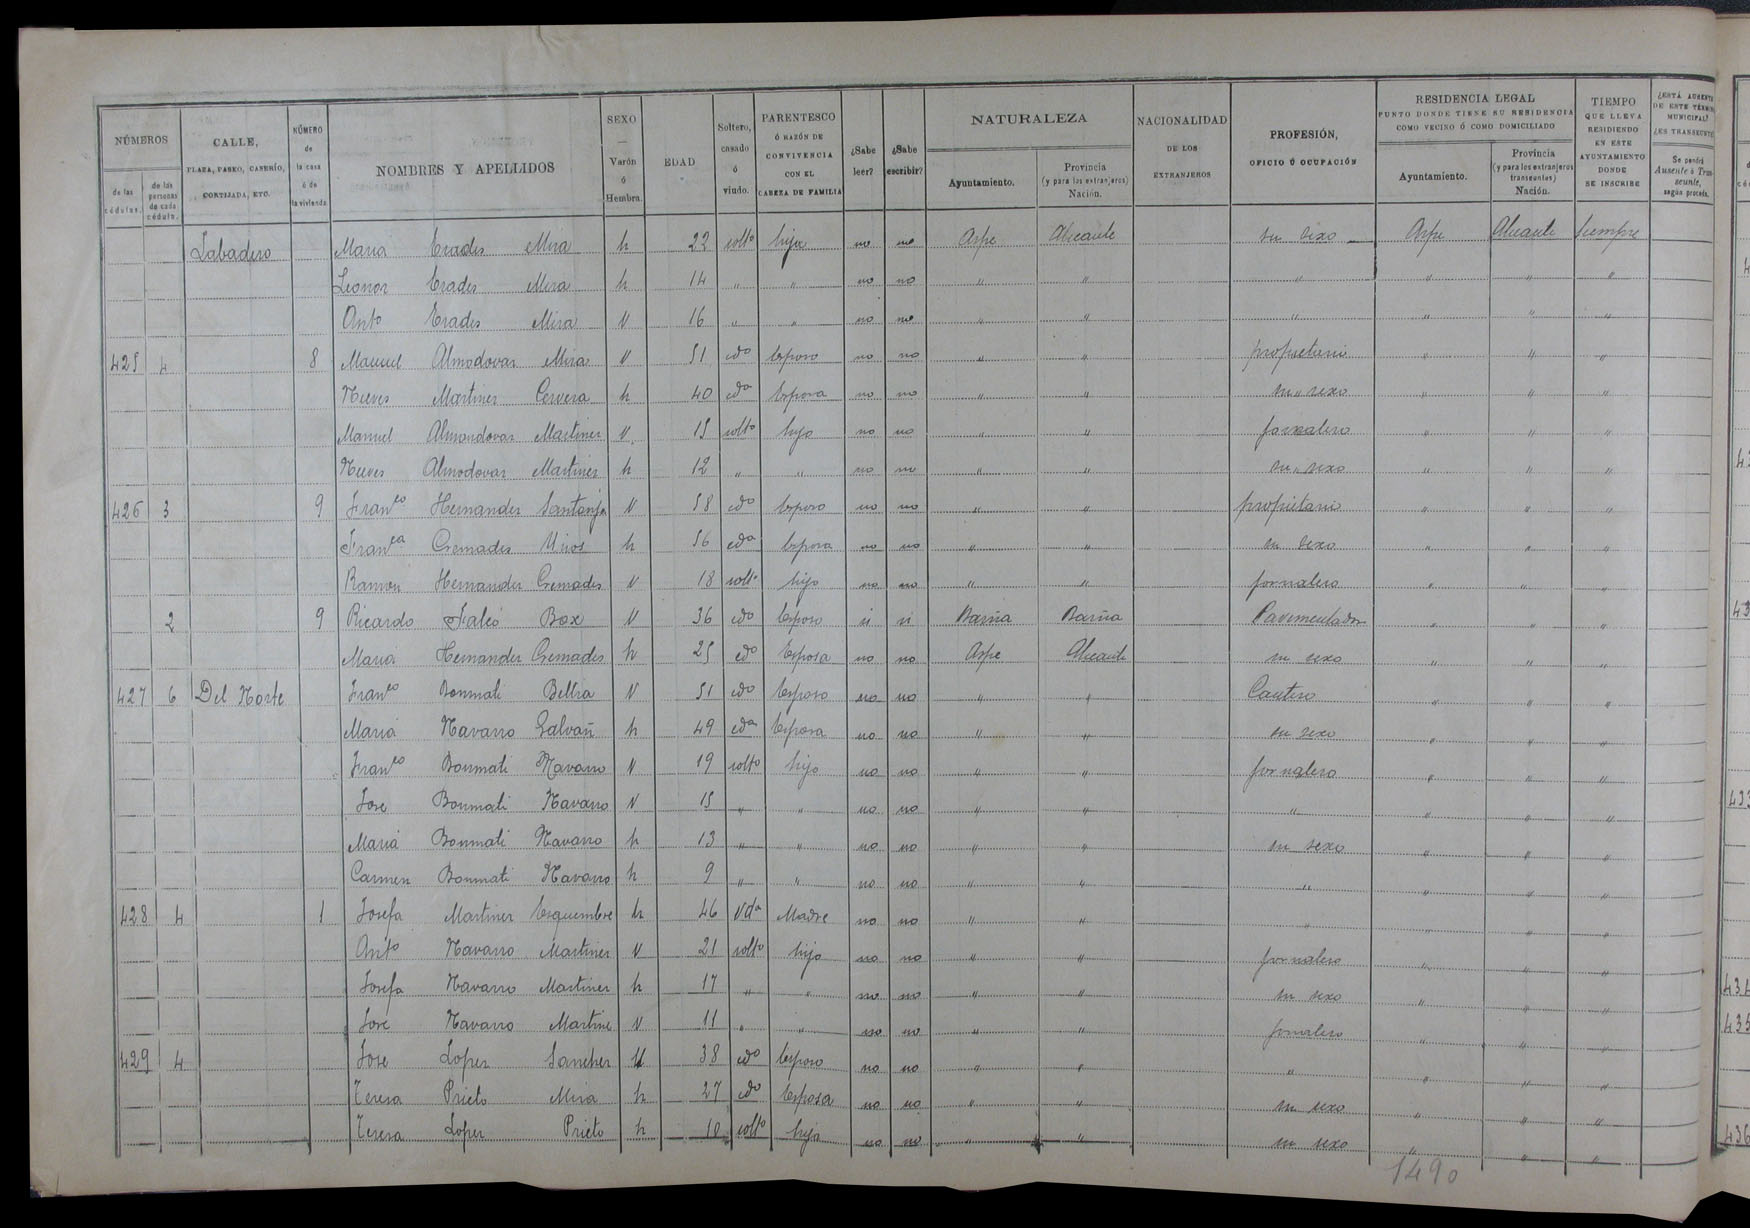 NÚMEROS
de las cédulas.
de las personas de cada cédula.
CALLE, PLAZA, PASEO, CASERÍO, CORTIJADA, ETC.
NÚMERO de la casa ó de la vivienda
NOMBRES Y APELLIDOS
SEXO Varón ó Hembra.
EDAD
Soltero, casado ó viudo.
PARENTESCO Ó RAZÓN DE CONVIVENCIA CON EL CABEZA DE FAMILIA
¿Sabe leer?
¿Sabe escribir?
NATURALEZA
Ayuntamiento.
Provincia (y para los extranjeros) Nación.
NACIONALIDAD DE LOS EXTRANJEROS
PROFESIÓN, OFICIO Ú OCUPACIÓN
RESIDENCIA LEGAL
PUNTO DONDE TIENE SU RESIDENCIA COMO VECINO Ó COMO DOMICILIADO
Ayuntamiento.
Provincia (y para los extranjeros transeuntes) Nación.
TIEMPO QUE LLEVA RESIDIENDO EN ESTE AYUNTAMIENTO DONDE SE INSCRIBE
¿ESTÁ AUSENTE DE ESTE TÉRMINO MUNICIPAL?
Se pondrá Ausente ó Transeunte, según proceda.
Labadero Maria Erades Mira h 22 solto hija no no Aspe Alicante su sexo Aspe Alicante Siempre
Leonor Erades Mira h 14 " " no no " " " " " "
Anto Erades Mira V 16 " " no no " " " " " "
425 4 8 Manuel Almodovar Mira V 51 cdo Esposo no no " " propietario " " "
Nieves Martinez Cervera h 40 cda Esposa no no " " su sexo " " "
Manuel Almondovar Martinez V 15 solto hijo no no " " jornalero " " "
Nieves Almodovar Martinez h 12 " " no no " " su sexo " " "
426 3 9 Franco Hernandez Santonja V 58 cdo Esposo no no " " propietario " " "
Franca Cremades h 56 cda Esposa no no " " su sexo " " "
Ramon Hernandez Cremades V 18 solto hijo no no " " jornalero " " "
2 9 Ricardo Falcó Box V 36 cdo Esposo si si Barña Barña Pavimentador " " "
Maria Hernandez Cremades h 25 cdo Esposa no no Aspe Alicante su sexo " " "
427 6 Del Norte Franco Bonmati Beltra V 51 cdo Esposo no no " " Cantero " " "
Maria Navarro Galvañ h 49 cda Esposa no no " " su sexo " " "
Franco Bonmati Navarro V 19 solto hijo no no " " jornalero " " "
Jose Bonmati Navarro V 15 " " no no " " " " " "
Maria Bonmati Navarro h 13 " " no no " " su sexo " " "
Carmen Bonmati Navarro h 9 " " no no " " " " " "
428 4 1 Josefa Martinez Esquembre h 46 Vda Madre no no " " " " " "
Anto Navarro Martinez V 21 solto hijo no no " " jornalero " " "
Josefa Navarro Martinez h 17 " " no no " " su sexo " " "
Jose Navarro Martine V 11 " " no no " " jornalero " " "
429 4 Jose Lopez Sanchez V 38 cdo Esposo no no " " " " " "
Teresa Prieto Mira h 27 cdo Esposa no no " " su sexo " " "
Teresa Lopez Prieto h 10 solto hija no no " " su sexo " " "
1490